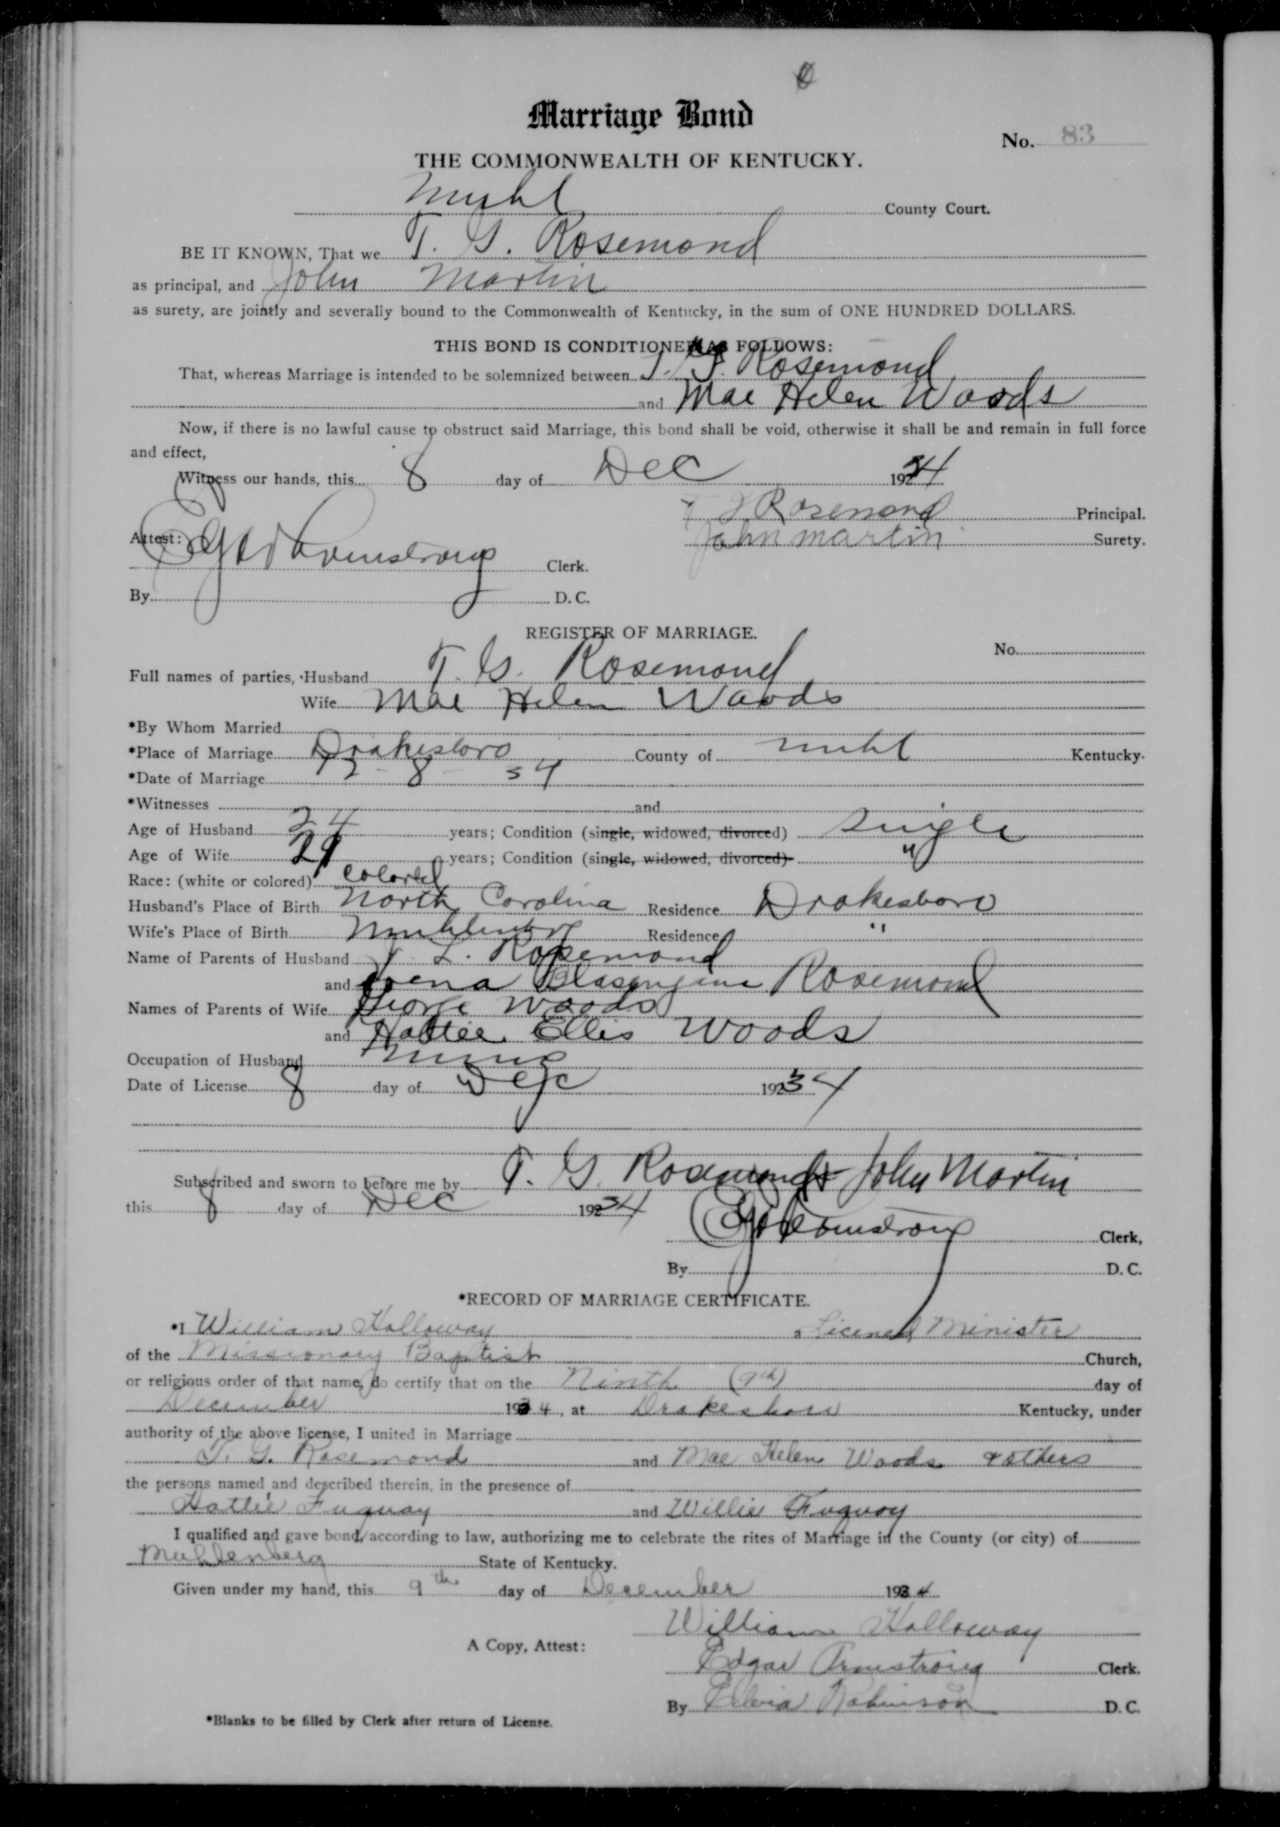 Marriage Bond
No. 83
THE COMMONWEALTH OF KENTUCKY.
Muhl County Court.
BE IT KNOWN, That we T. G. Rosemond
as principal, and John Martin
as surety, are jointly and severally bound to the Commonwealth of Kentucky, in the sum of ONE HUNDRED DOLLARS.
THIS BOND IS CONDITIONED AS FOLLOWS:
That, whereas Marriage is intended to be solemnized between T. G. Rosemond
and Mae Helen Woods
Now, if there is no lawful cause to obstruct said Marriage, this bond shall be void, otherwise it shall be and remain in full force
and effect,
Witness our hands, this 8 day of Dec 1934
T G Rosemond Principal.
Attest: John Martin Surety.
Edgar Armstrong Clerk.
By D. C.
REGISTER OF MARRIAGE.
No.
Full names of parties, Husband T. G. Rosemond
Wife Mae Helen Woods
*By Whom Married
*Place of Marriage Drakesboro County of Muhl Kentucky.
*Date of Marriage 12-8-34
*Witnesses and
Age of Husband 24 years; Condition (single, widowed, divorced) Single
Age of Wife 21 years; Condition (single, widowed, divorced) "
Race: (white or colored) Colored
Husband's Place of Birth North Carolina Residence Drakesboro
Wife's Place of Birth Muhlenberg Residence "
Name of Parents of Husband L. Rosemond
and Rosemond
Names of Parents of Wife George Woods
and Hattie Ellis Woods
Occupation of Husband
Date of License 8 day of Dec 1934
Subscribed and sworn to before me by T. G. Rosemond & John Martin
this 8 day of Dec 1934
Edgar Armstrong Clerk,
By D. C.
*RECORD OF MARRIAGE CERTIFICATE.
*I William Holloway a Licened Minister
of the Missionary Baptist Church,
or religious order of that name, do certify that on the Ninth (9th) day of
December 1934, at Drakesboro Kentucky, under
authority of the above license, I united in Marriage
T. G. Rosemond and Mae Helen Woods & others
the persons named and described therein, in the presence of
Hattie Fuquay and Willie Fuquay
I qualified and gave bond, according to law, authorizing me to celebrate the rites of Marriage in the County (or city) of
Muhlenberg State of Kentucky.
Given under my hand, this 9th day of December 1934
William Holloway
A Copy, Attest:
Edgar Armstrong Clerk.
By Robinson D. C.
*Blanks to be filled by Clerk after return of License.